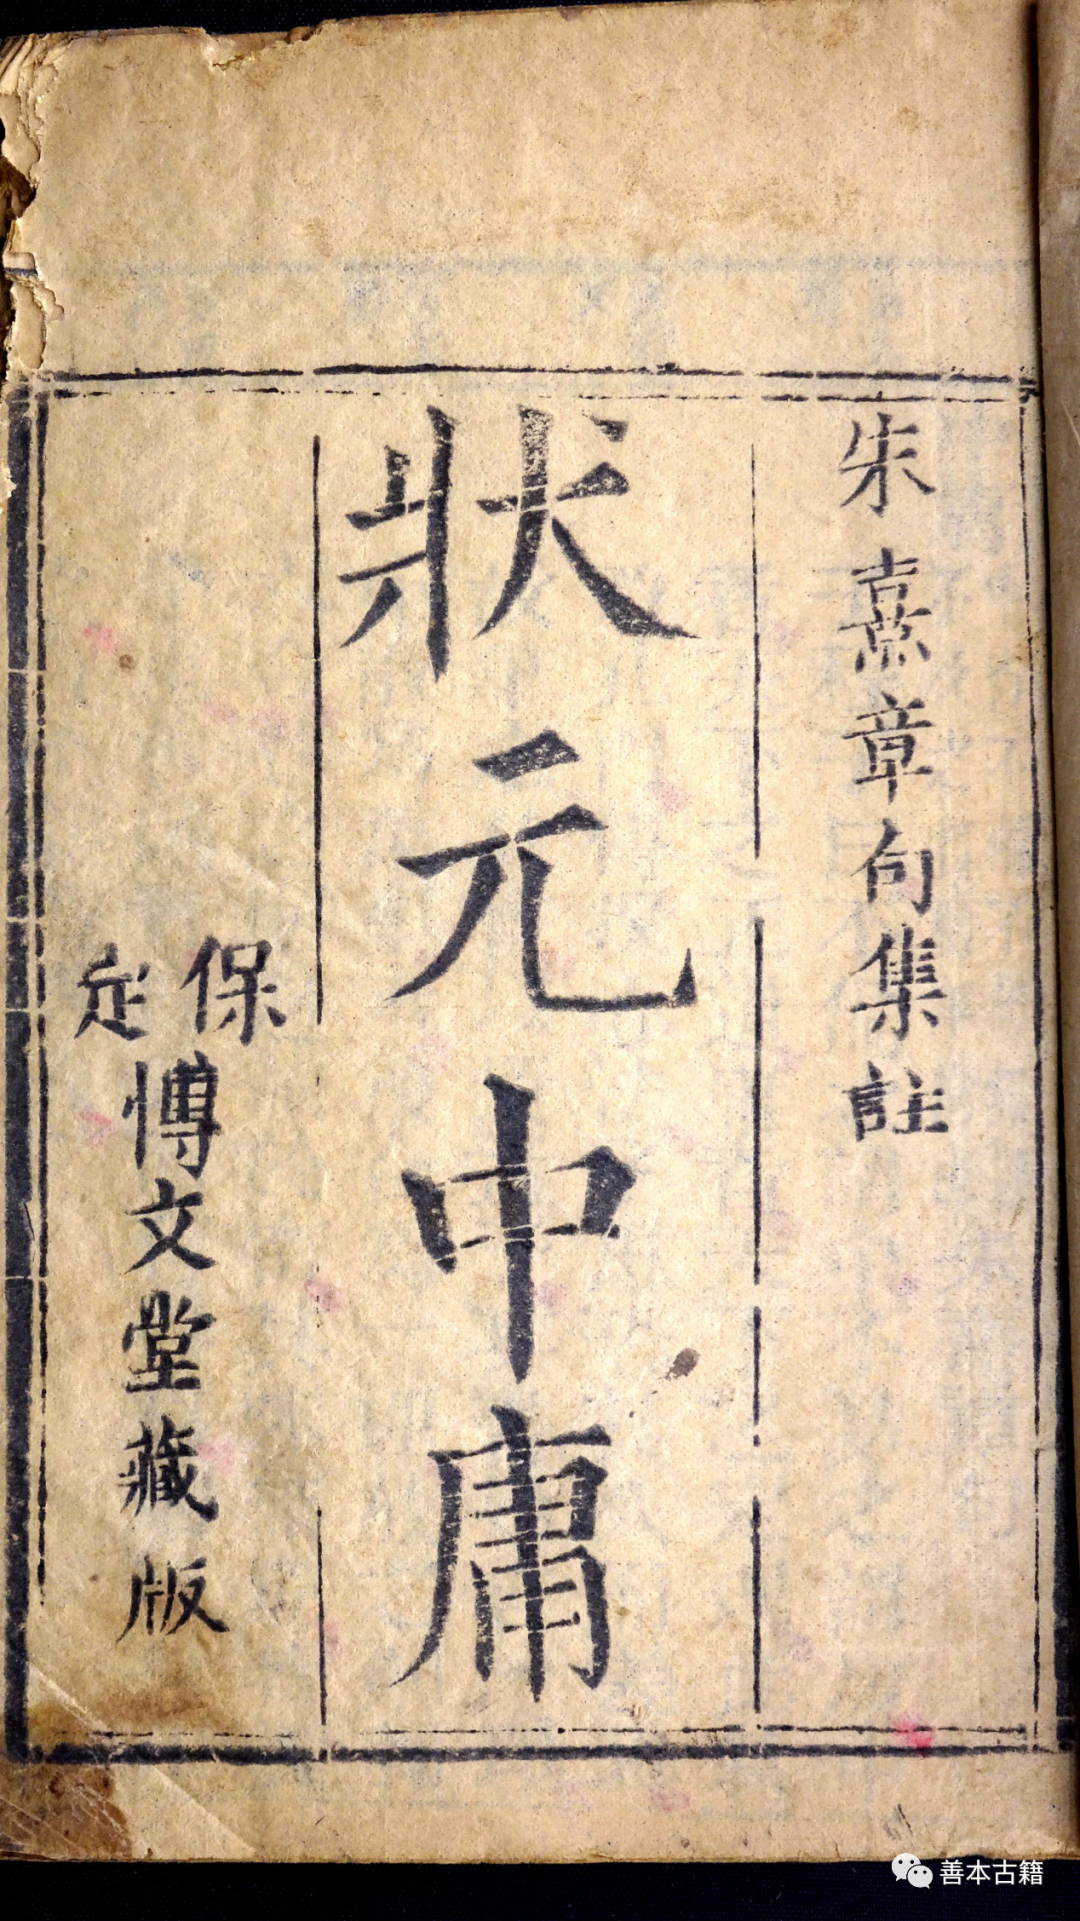 朱熹章句集註
狀元中庸
保定
博文堂藏版
善本古籍